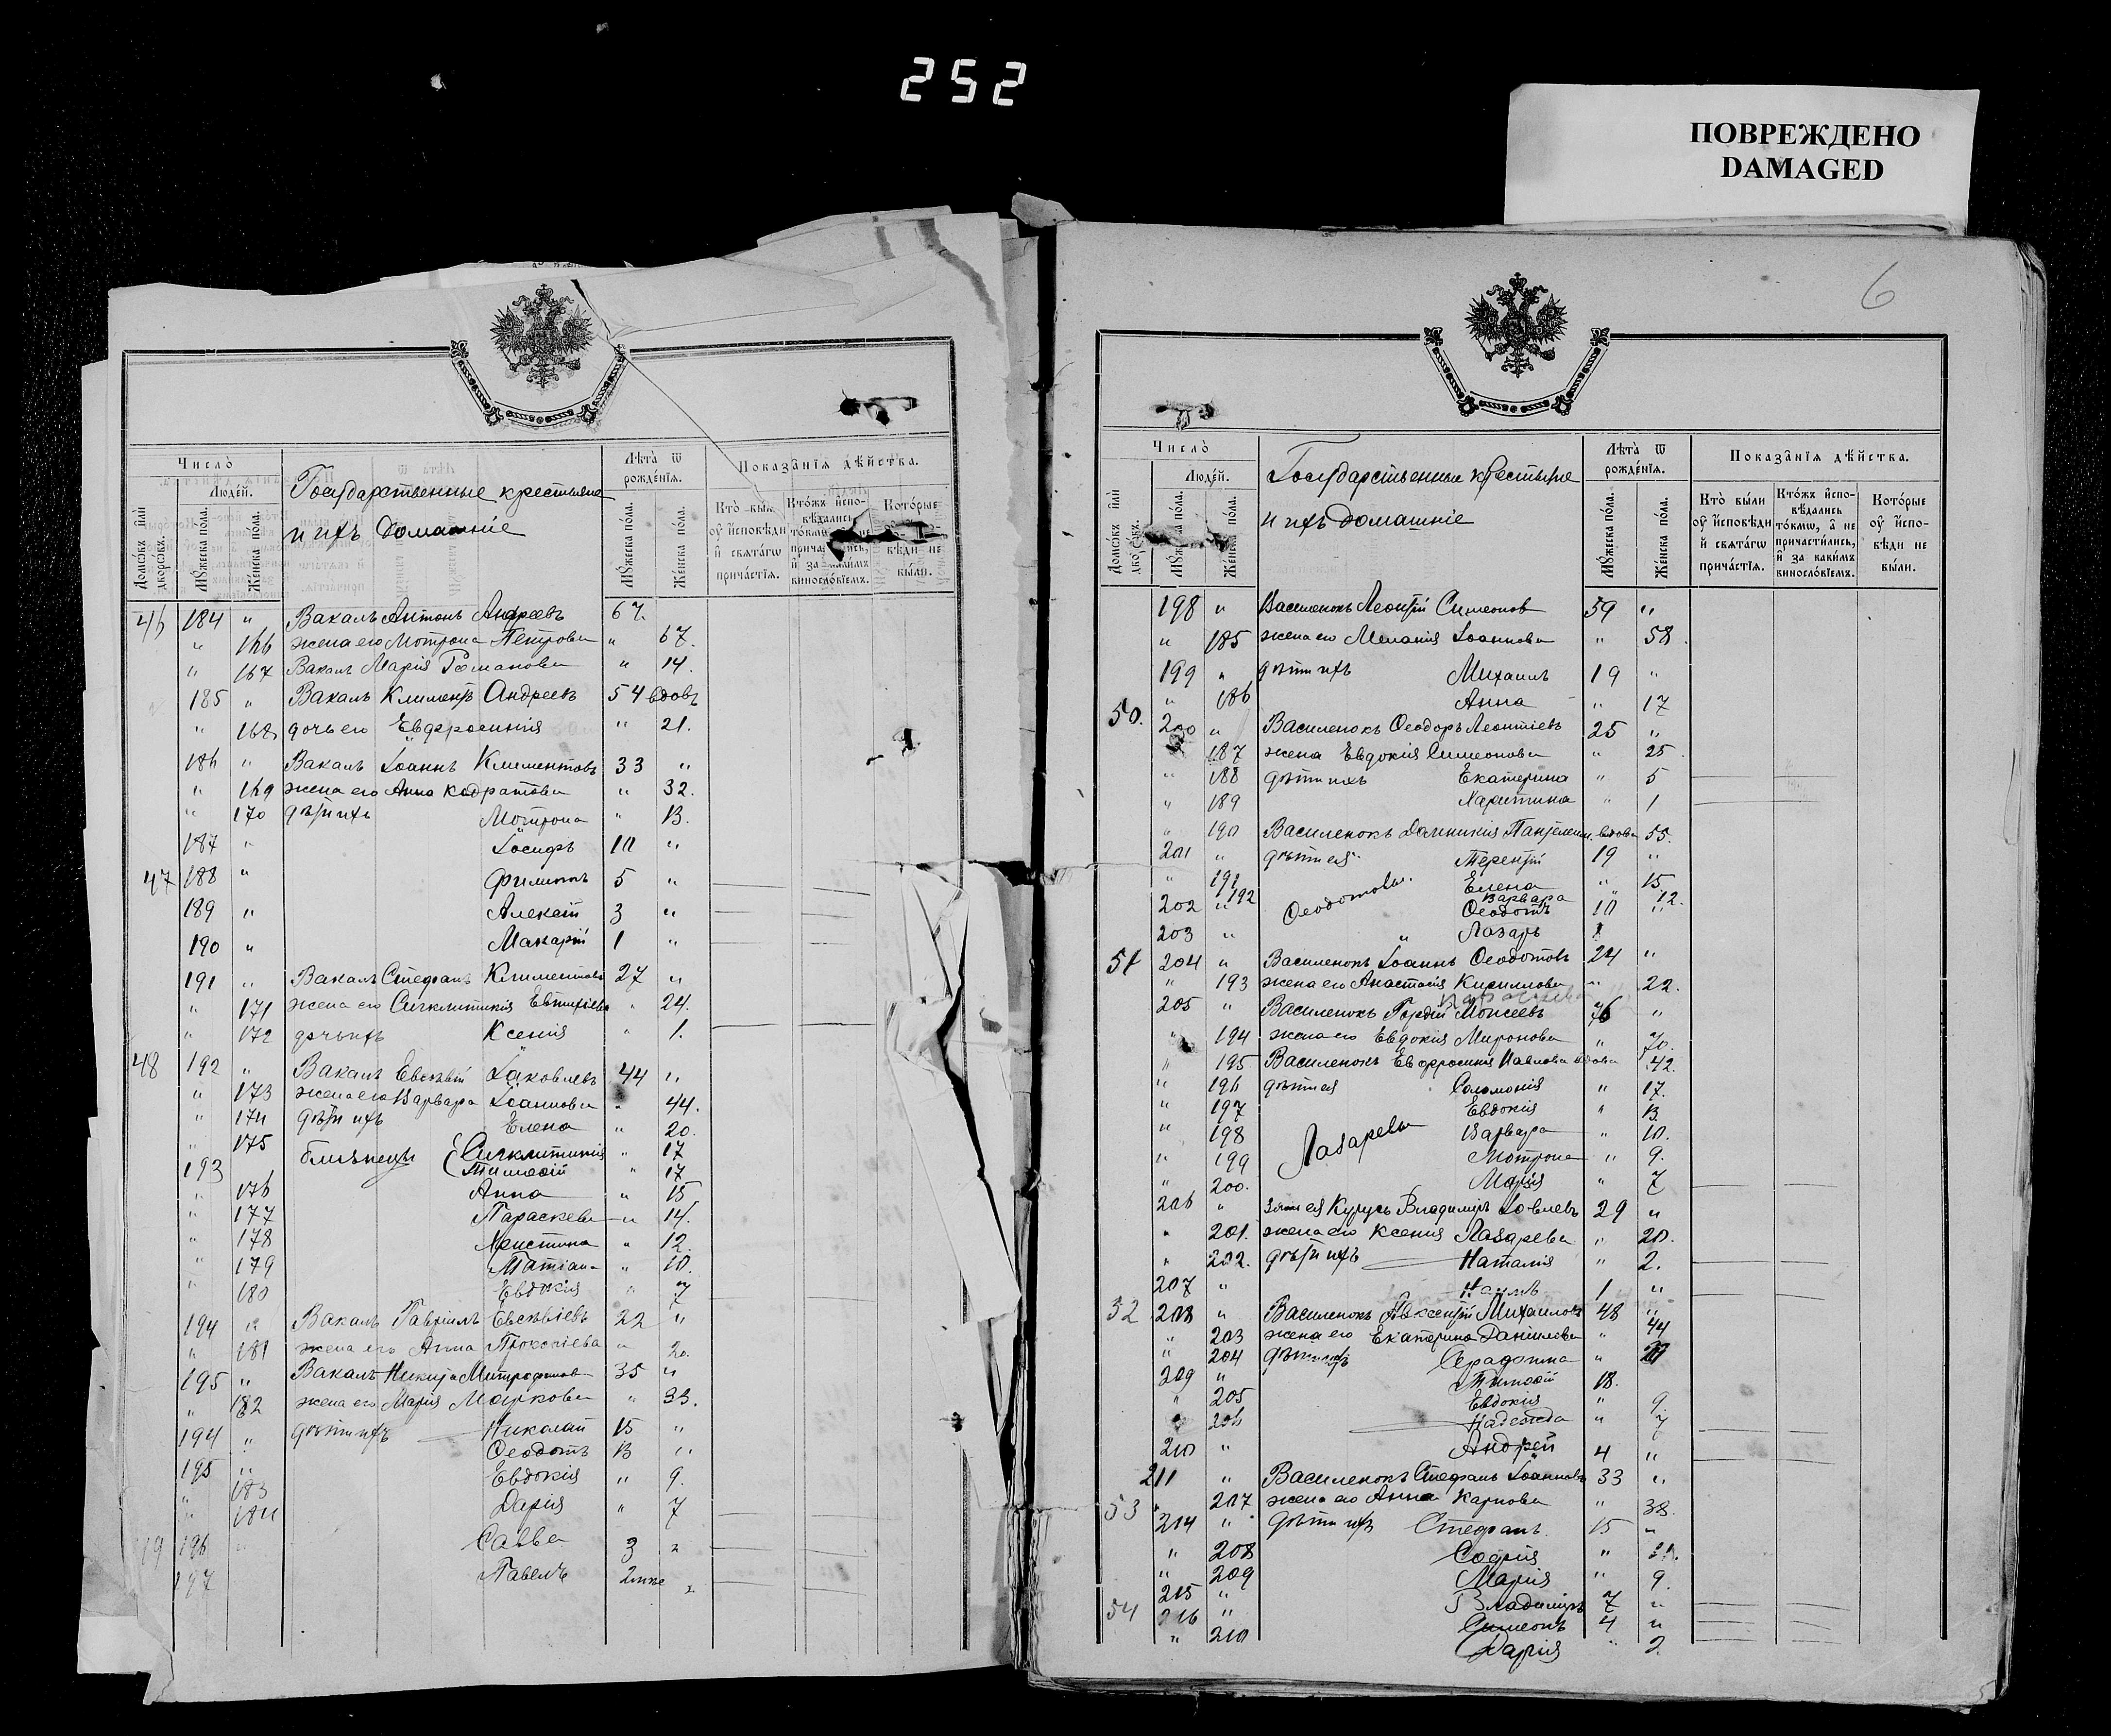 252
ПОВРЕЖДЕНО
DAMAGED
Число̀
Людéй.
Домѡ́въ и҆лѝ дворѡ́въ.
Мꙋ́жеска по́ла.
Же́нска по́ла.
Государственные крестьяне
и ихъ домашніе
Лѣта̀ ѿ рожде́нїѧ.
Мꙋ́жеска по́ла.
Же́нска по́ла.
Показа̂нїѧ дѣ́йства.
Кто̀ бы́ли оу҆ и҆сповѣди и҆ свѧта́гѡ прича́стїѧ.
46 184 " Вакалъ Антонъ Андреевъ 67.
" 166 жена его Мотрона Петрова " 67.
" 167 Вакалъ Марія Романова " 14.
185 " Вакалъ Климентъ Андреевъ 54 вдовъ
" 168 дочь его Евфросинія " 21.
186 " Вакалъ Іоаннъ Климентовъ 33 "
" 169 жена его Анна Кодратова " 32.
" 170 дѣти ихъ Мотрона " 13.
187 " Іосифъ 10 "
47 188 " Филиппъ 5 "
189 " Алексій 3 "
190 " Макарій 1 "
191 " Вакалъ Стефанъ Климентовъ 27 "
" 171 жена его Сигклитикія Евтихіева " 24.
" 172 дочь ихъ Ксенія " 1.
48 192 " Вакалъ Евсевій Іаковлевъ 44 "
" 173 жена его Варвара Іоаннова " 44.
" 174 дѣти ихъ Елена " 20.
" 175 близнецы Сигклитикія " 17
193 Тимоѳій " 17
" 176 Анна " 15
" 177 Параскева " 14.
" 178 Христина " 12.
" 179 Татіана " 10.
" 180 Евдокія " 7
194 " Вакалъ Гавріилъ Евсевіевъ 22 "
" 181 жена его Анна Прокопіева " 20.
195 " Вакалъ Никита Митрофановъ 35 "
" 182 жена его Марія Маркова " 33.
194 " дѣти ихъ Николай 15 "
Ѳеодотъ 13 "
195 " Евдокія " 9.
" 183 Дарія " 7
" 184
49 196 " Савва 3 "
197 Павелъ "
6
Число̀
Людéй.
Домѡ́въ и҆лѝ
Мꙋ́жеска по́ла.
Же́нска по́ла.
Государственные крестьяне
и ихъ домашніе
Лѣта̀ ѿ рожде́нїѧ.
Мꙋ́жеска по́ла.
Же́нска по́ла.
Показа̂нїѧ дѣ́йства.
Кто̀ бы́ли оу҆ и҆сповѣди и҆ свѧта́гѡ прича́стїѧ.
Кто́жъ и҆спо- вѣ́дались то́кмѡ, а҆ не причасти́лись, и҆ за каки́мъ винословїемъ.
Кото́рые оу҆ и҆спо- вѣди не бы́ли.
198 " Василенокъ Леонтій Симеоновъ 59 "
" 185 жена его Меланія Іоаннова " 58.
199 " дѣти ихъ Михаилъ 19 "
" 186 Анна " 17
50. 200 " Василенокъ Ѳеодоръ Леонтіевъ 25 "
187 жена Евдокія Симеонова " 25.
" 188 дѣти ихъ Екатерина " 5
" 189 Харитина " 1
" 190 Василенокъ Домникія вдова 55.
201 " дѣти ея Терентій 19 "
" 191 Елена " 15
192 Варвара 12.
202 " Ѳеодотовы. Ѳеодотъ 10 "
203 " Лазарь
51 204 " Василенокъ Іоаннъ Ѳеодотовъ 24 "
" 193 жена его Анастасія Кириллова " 22.
205 " Василенокъ Гордій Моисеевъ 76 "
" 194 жена его Евдокія Миронова " 70.
" 195 Василенокъ Евфросинія Павлова вдова 42.
" 196 дѣти ея Соломонія " 17.
" 197 Евдокія " 13.
" 198 Лазаревы Варвара " 10.
" 199 Мотрона " 9.
" 200. Марія " 7
206 " зять ея Курусь Владиміръ 29 "
" 201. жена его Ксенія Лазарева " 20.
" 202. дѣти ихъ Наталія " 2.
207 " 1 "
52 208 " Василенокъ Авксентій Михаиловъ 48 "
" 203 жена его Екатерина Даніилова " 44
" 204 дѣти ихъ "
209 " Тимоѳій 18.
" 205 Евдокія " 9
206 Надежда " 7
210 " Андрей 4 "
211 " Василенокъ Стефанъ Іоанновъ 33 "
53 " 207 жена его Анна Карпова " 38.
214 " дѣти ихъ Стефанъ 15 "
" 208 Софія "
" 209 Марія " 9.
215 " Владиміръ 7 "
54 216 " Симеонъ 4 "
" 210 Дарія " 2.